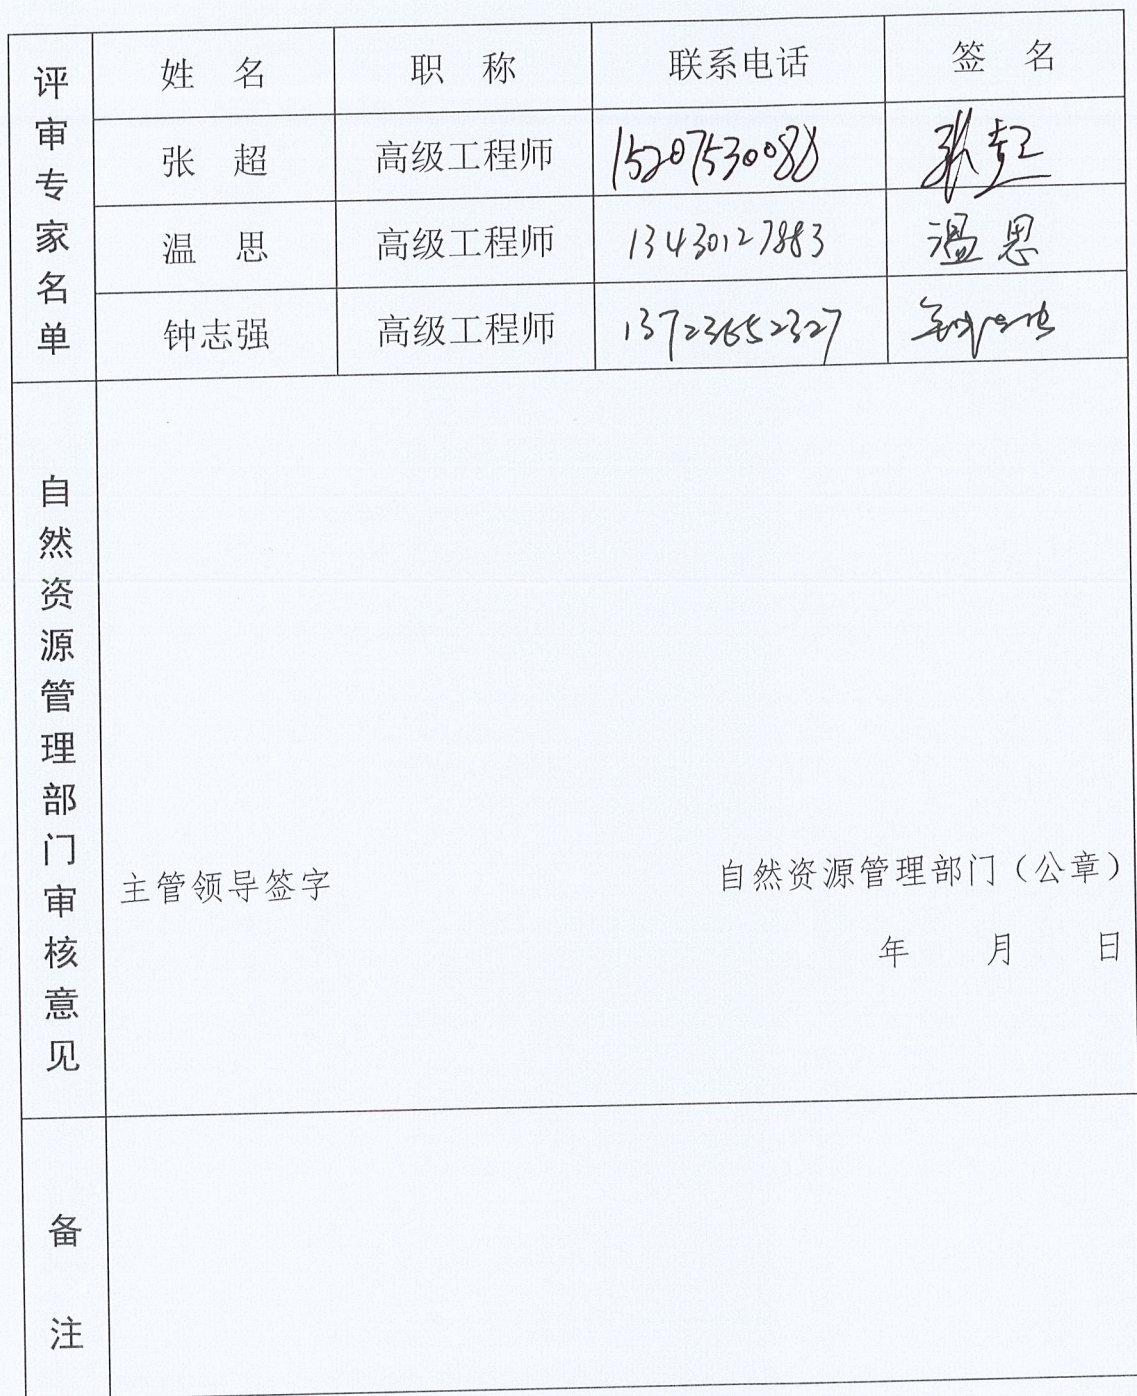 评审专家名单
姓 名 职 称 联系电话 签 名
张 超 高级工程师 15207530088 张超
温 思 高级工程师 13430127883 温思
钟志强 高级工程师 13723652327 钟志强
自然资源管理部门审核意见
主管领导签字 自然资源管理部门（公章）
年 月 日
备注